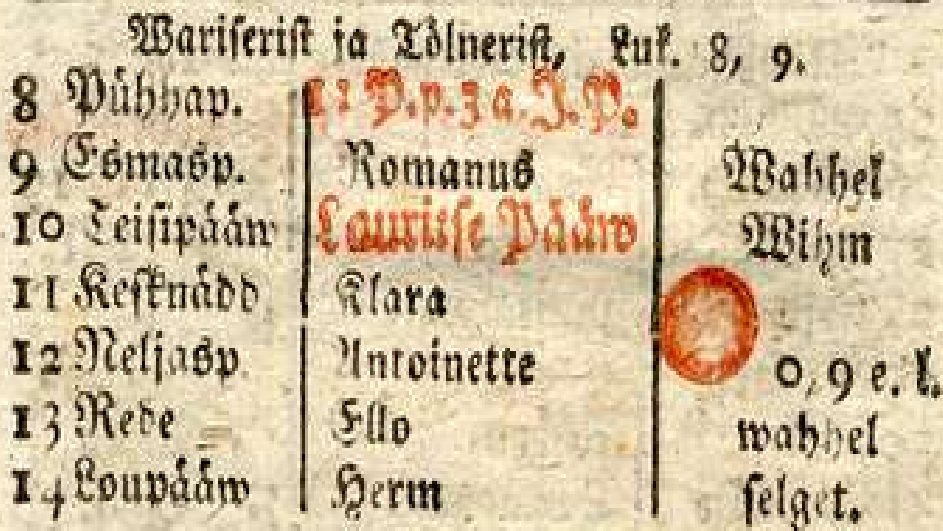 Wariserist ja Tölnerist, Luk. 8, 9.
8 Pühhap. 11 P. p. 3 a. J. P.
9 Esmasp. Romanus Wahhel
10 Teisipääw Lauritse Pääw Wihm
11 Kesknädd Klara
12 Neljasp. Antoinette 0, 9 e. l.
13 Rede Ello wahhel
14 Loupääw Herm selget.